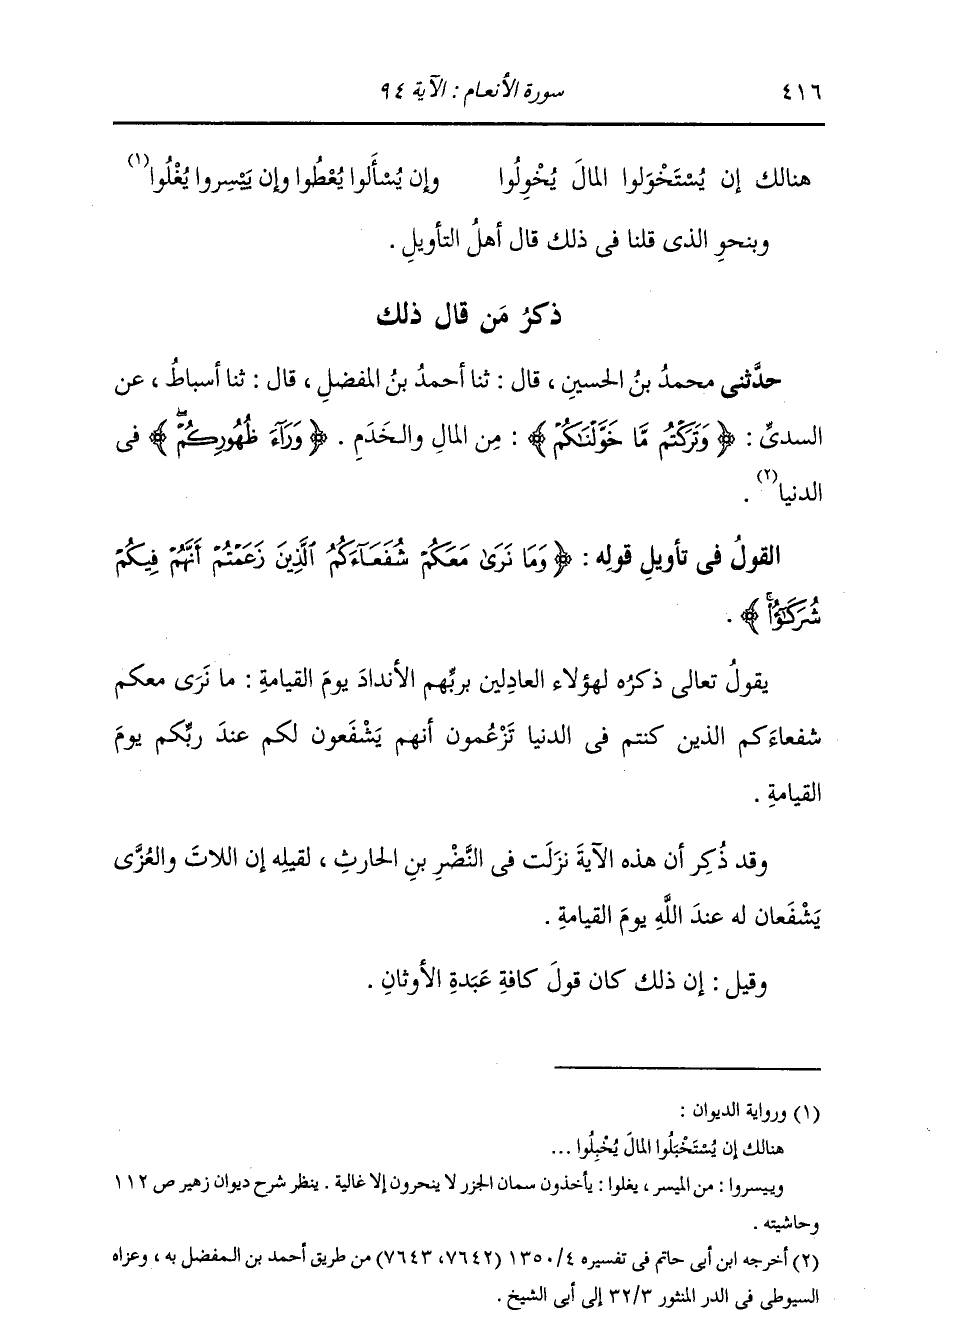 ٤١٦ سورة الأنعام : الآية ٩٤
هنالك إن يُسْتَخْوَلوا المالَ يُخْوِلُوا وإن يُسْأَلوا يُعْطُوا وإن يَيْسِروا يُغْلُوا(١)
وبنحوِ الذى قلنا فى ذلك قال أهلُ التأويلِ .
ذكرُ مَن قال ذلك
حدَّثنى محمدُ بنُ الحسينِ ، قال : ثنا أحمدُ بنُ المفضلِ ، قال : ثنا أسباطُ ، عن
السدىِّ : ﴿ وَتَرَكْتُم مَّا خَوَّلْنَٰكُمْ ﴾ : مِن المالِ والخَدَمِ . ﴿ وَرَآءَ ظُهُورِكُمْ ۖ ﴾ فى
الدنيا(٢) .
القولُ فى تأويلِ قولِه : ﴿ وَمَا نَرَىٰ مَعَكُمْ شُفَعَآءَكُمُ ٱلَّذِينَ زَعَمْتُمْ أَنَّهُمْ فِيكُمْ
شُرَكَٰٓؤُا۟ ۚ ﴾ .
يقولُ تعالى ذكرُه لهؤلاء العادِلين بربِّهم الأندادَ يومَ القيامةِ : ما نَرَى معكم
شفعاءَكم الذين كنتم فى الدنيا تَزْعُمون أنهم يَشْفَعون لكم عندَ ربِّكم يومَ
القيامةِ .
وقد ذُكِر أن هذه الآيةَ نزَلَت فى النَّضْرِ بنِ الحارثِ ، لقيلِه إن اللاتَ والعُزَّى
يَشْفَعان له عندَ اللَّهِ يومَ القيامةِ .
وقيل : إن ذلك كان قولَ كافةِ عَبَدةِ الأوثانِ .
(١) ورواية الديوان :
هنالك إن يُسْتَخْبَلُوا المالَ يُخْبِلُوا ...
وييسروا : من الميسر ، يغلوا : يأخذون سمان الجزر لا ينحرون إلا غالية . ينظر شرح ديوان زهير ص ١١٢
وحاشيته .
(٢) أخرجه ابن أبى حاتم فى تفسيره ٤/ ١٣٥٠ (٧٦٤٢، ٧٦٤٣) من طريق أحمد بن المفضل به ، وعزاه
السيوطى فى الدر المنثور ٣/ ٣٢ إلى أبى الشيخ .